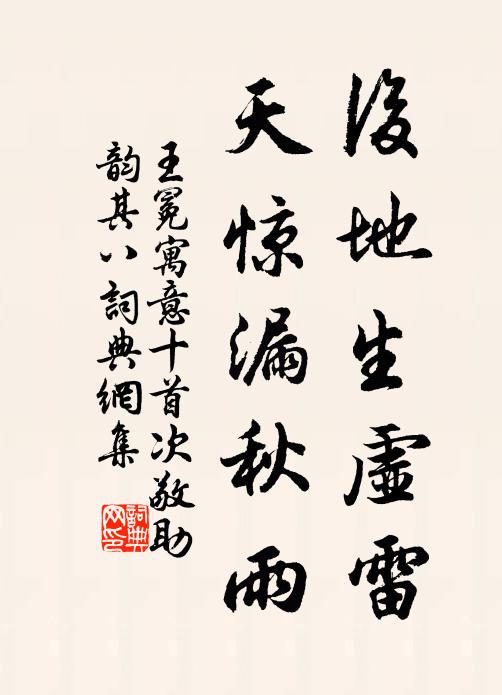 後地生虛雷
天惊漏秋雨
王冕寓意十首次敬助
韵其八詞典網集
詞典
网印